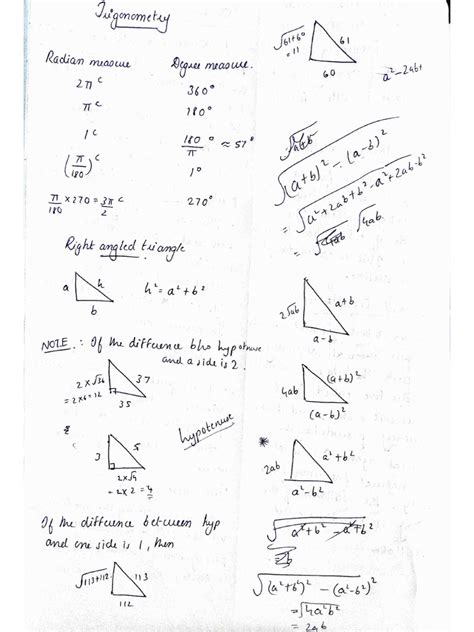 Trigonometry
Radian measure Degree measure.
2π^c 360°
π^c 180°
1^c 180°/π ≈ 57°
(π/180)^c 1°
π/180 × 270 = 3π/2 ^c 270°
Right angled triangle
a h b h² = a² + b²
NOTE. : If the difference b/w hypotenuse
and a side is 2.
2×√36 = 2×6 = 12 37 35
3 5 2×√4 = 2×2 = 4
hypotenuse
If the diffuence between hyp
and one side is 1, then
√113+112 113 112
√61+60 = 11 61 60
a² - 2ab+
√(a+b)² - (a-b)²
= √a²+2ab+b²-a²+2ab-b²
= √4ab √4ab
2√ab a+b a-b
4ab (a+b)² (a-b)²
* 2ab a²+b² a²-b²
√a²+b² -a²+b²
√(a²+b²)² - (a²-b²)²
= √4a²b²
= 2ab